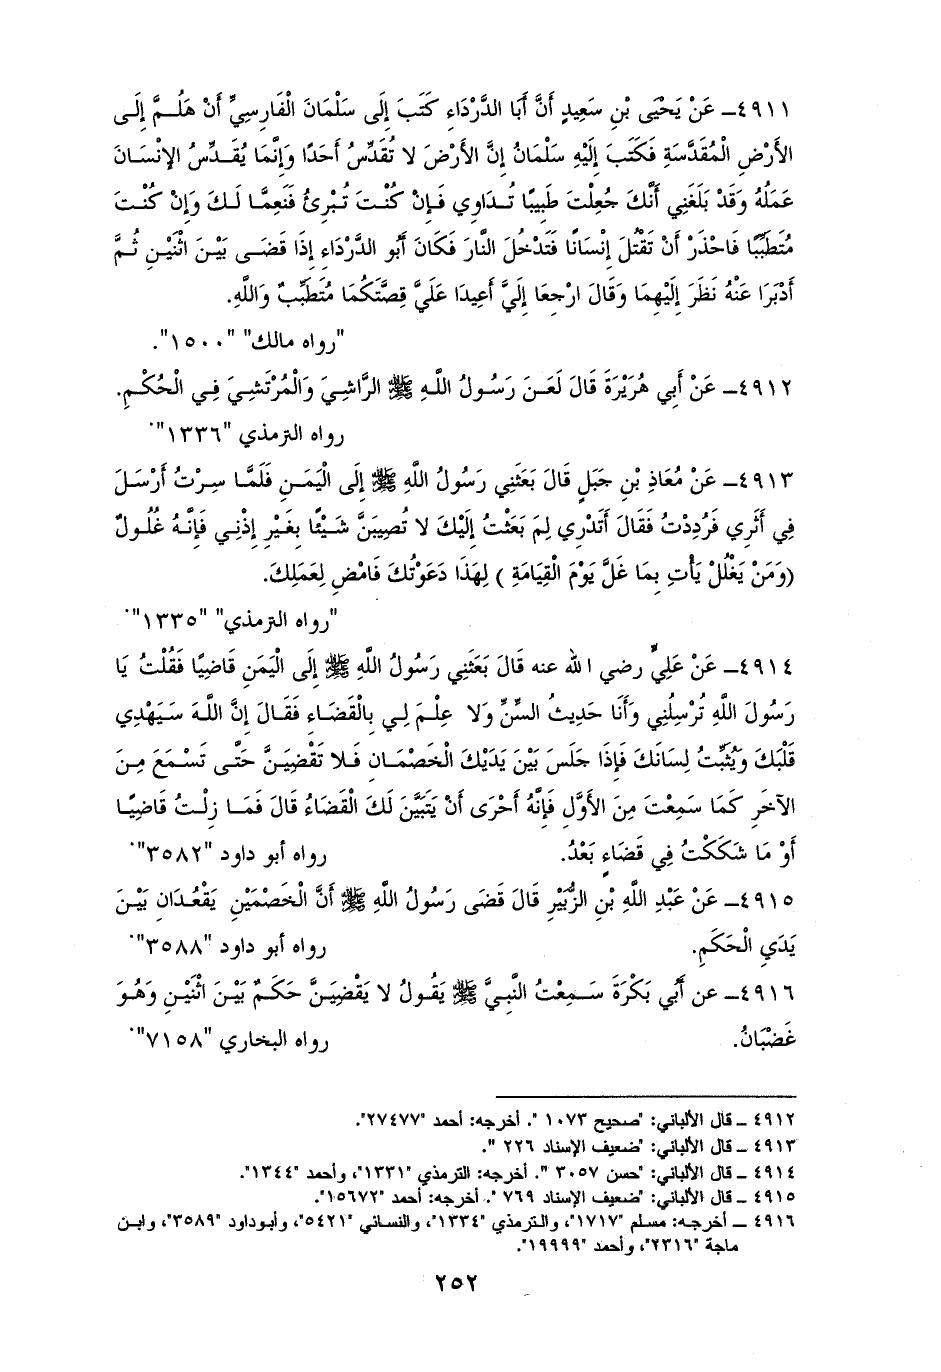 ٤٩١١ـ عَنْ يَحْيَى بْنِ سَعِيدٍ أَنَّ أَبَا الدَّرْدَاءِ كَتَبَ إِلَى سَلْمَانَ الْفَارِسِيِّ أَنْ هَلُمَّ إِلَى
الأَرْضِ الْمُقَدَّسَةِ فَكَتَبَ إِلَيْهِ سَلْمَانُ إِنَّ الأَرْضَ لا تُقَدِّسُ أَحَدًا وَإِنَّمَا يُقَدِّسُ الإِنْسَانَ
عَمَلُهُ وَقَدْ بَلَغَنِي أَنَّكَ جُعِلْتَ طَبِيبًا تُدَاوِي فَإِنْ كُنْتَ تُبْرِئُ فَنَعِمَّا لَكَ وَإِنْ كُنْتَ
مُتَطَبِّبًا فَاحْذَرْ أَنْ تَقْتُلَ إِنْسَانًا فَتَدْخُلَ النَّارَ فَكَانَ أَبُو الدَّرْدَاءِ إِذَا قَضَى بَيْنَ اثْنَيْنِ ثُمَّ
أَدْبَرَا عَنْهُ نَظَرَ إِلَيْهِمَا وَقَالَ ارْجِعَا إِلَيَّ أَعِيدَا عَلَيَّ قِصَّتَكُمَا مُتَطَبِّبٌ وَاللَّهِ.
"رواه مالك" "١٥٠٠".
٤٩١٢ـ عَنْ أَبِي هُرَيْرَةَ قَالَ لَعَنَ رَسُولُ اللَّهِ ﷺ الرَّاشِيَ وَالْمُرْتَشِيَ فِي الْحُكْمِ.
رواه الترمذي "١٣٣٦".
٤٩١٣ـ عَنْ مُعَاذِ بْنِ جَبَلٍ قَالَ بَعَثَنِي رَسُولُ اللَّهِ ﷺ إِلَى الْيَمَنِ فَلَمَّا سِرْتُ أَرْسَلَ
فِي أَثَرِي فَرُدِدْتُ فَقَالَ أَتَدْرِي لِمَ بَعَثْتُ إِلَيْكَ لا تُصِيبَنَّ شَيْئًا بِغَيْرِ إِذْنِي فَإِنَّهُ غُلُولٌ
(وَمَنْ يَغْلُلْ يَأْتِ بِمَا غَلَّ يَوْمَ الْقِيَامَةِ ) لِهَذَا دَعَوْتُكَ فَامْضِ لِعَمَلِكَ.
"رواه الترمذي" "١٣٣٥".
٤٩١٤ـ عَنْ عَلِيٍّ رضي الله عنه قَالَ بَعَثَنِي رَسُولُ اللَّهِ ﷺ إِلَى الْيَمَنِ قَاضِيًا فَقُلْتُ يَا
رَسُولَ اللَّهِ تُرْسِلُنِي وَأَنَا حَدِيثُ السِّنِّ وَلا عِلْمَ لِي بِالْقَضَاءِ فَقَالَ إِنَّ اللَّهَ سَيَهْدِي
قَلْبَكَ وَيُثَبِّتُ لِسَانَكَ فَإِذَا جَلَسَ بَيْنَ يَدَيْكَ الْخَصْمَانِ فَلا تَقْضِيَنَّ حَتَّى تَسْمَعَ مِنَ
الآخَرِ كَمَا سَمِعْتَ مِنَ الأَوَّلِ فَإِنَّهُ أَحْرَى أَنْ يَتَبَيَّنَ لَكَ الْقَضَاءُ قَالَ فَمَا زِلْتُ قَاضِيًا
أَوْ مَا شَكَكْتُ فِي قَضَاءٍ بَعْدُ. رواه أبو داود "٣٥٨٢".
٤٩١٥ـ عَنْ عَبْدِ اللَّهِ بْنِ الزُّبَيْرِ قَالَ قَضَى رَسُولُ اللَّهِ ﷺ أَنَّ الْخَصْمَيْنِ يَقْعُدَانِ بَيْنَ
يَدَيِ الْحَكَمِ. رواه أبو داود "٣٥٨٨".
٤٩١٦ـ عن أَبِي بَكْرَةَ سَمِعْتُ النَّبِيَّ ﷺ يَقُولُ لا يَقْضِيَنَّ حَكَمٌ بَيْنَ اثْنَيْنِ وَهُوَ
غَضْبَانُ. رواه البخاري "٧١٥٨".
٤٩١٢ ـ قال الألباني: "صحيح ١٠٧٣ ". أخرجه: أحمد "٢٧٤٧٧".
٤٩١٣ ـ قال الألباني: "ضعيف الإسناد ٢٢٦ ".
٤٩١٤ ـ قال الألباني: "حسن ٣٠٥٧ ". أخرجه: الترمذي "١٣٣١"، وأحمد "١٣٤٤".
٤٩١٥ ـ قال الألباني: "ضعيف الإسناد ٧٦٩ ". أخرجه: أحمد "١٥٦٧٢".
٤٩١٦ ـ أخرجه: مسلم "١٧١٧"، والترمذي "١٣٣٤"، والنسائي "٥٤٢١"، وأبوداود "٣٥٨٩"، وابن
ماجة "٢٣١٦"، وأحمد "١٩٩٩٩".
٢٥٢